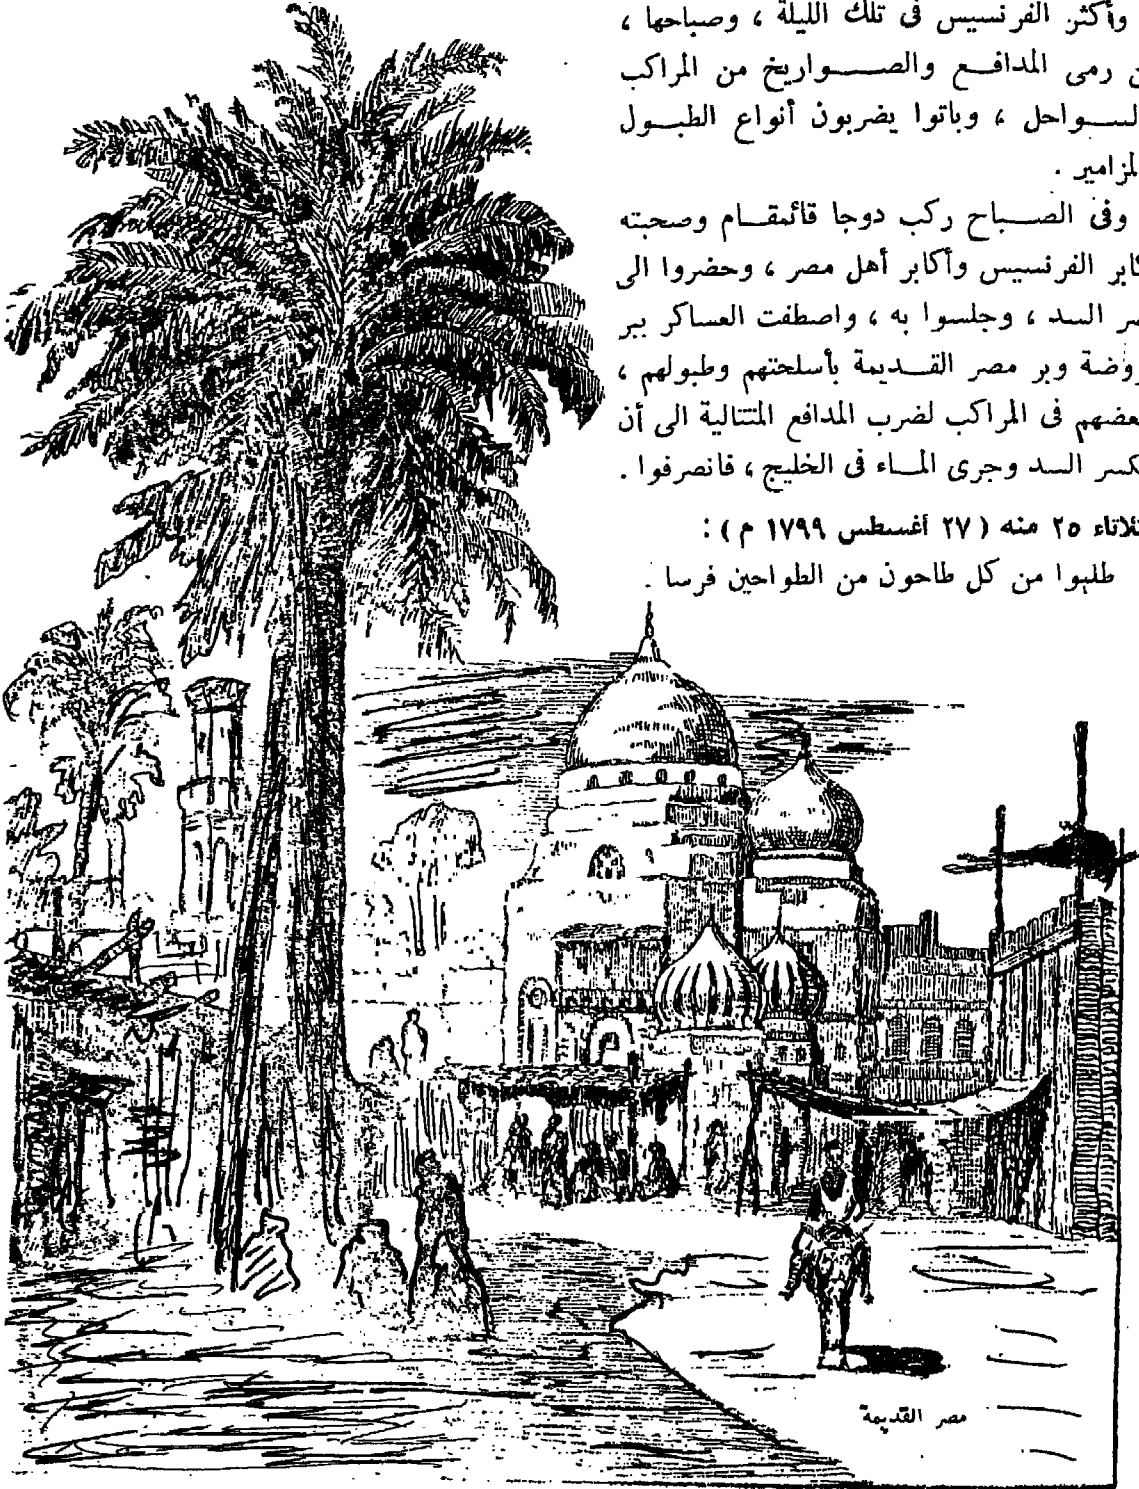 وأكثر الفرنسيس فى تلك الليلة ، وصباحها ،
رمى المدافع والصواريخ من المراكب
لسواحل ، وباتوا يضربون أنواع الطبول
لمزامير .
وفى الصباح ركب دوجا قائمقام وصحبته
كابر الفرنسيس وأكابر أهل مصر ، وحضروا الى
السد ، وجلسوا به ، واصطفت العساكر ببر
روضة وبر مصر القديمة بأسلحتهم وطبولهم ،
عضهم فى المراكب لضرب المدافع المتتالية الى أن
كسر السد وجرى الماء فى الخليج ، فانصرفوا .
ثلاثاء ٢٥ منه ( ٢٧ أغسطس ١٧٩٩ م ) :
طلبوا من كل طاحون من الطواحين فرسا .
مصر القديمة